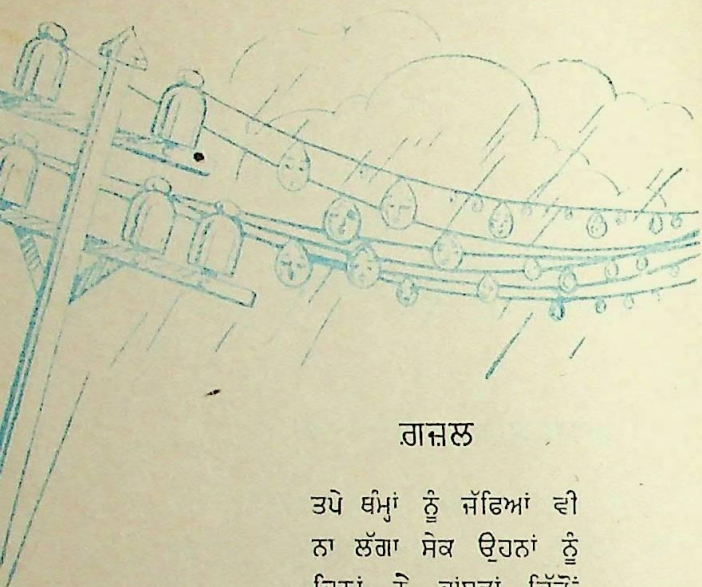 ਗ਼ਜ਼ਲ
ਤਪੇ ਥੰਮ੍ਹਾਂ ਨੂੰ ਜੱਫਿਆਂ ਵੀ
ਨਾ ਲੱਗਾ ਸੇਕ ਉਹਨਾਂ ਨੂੰ